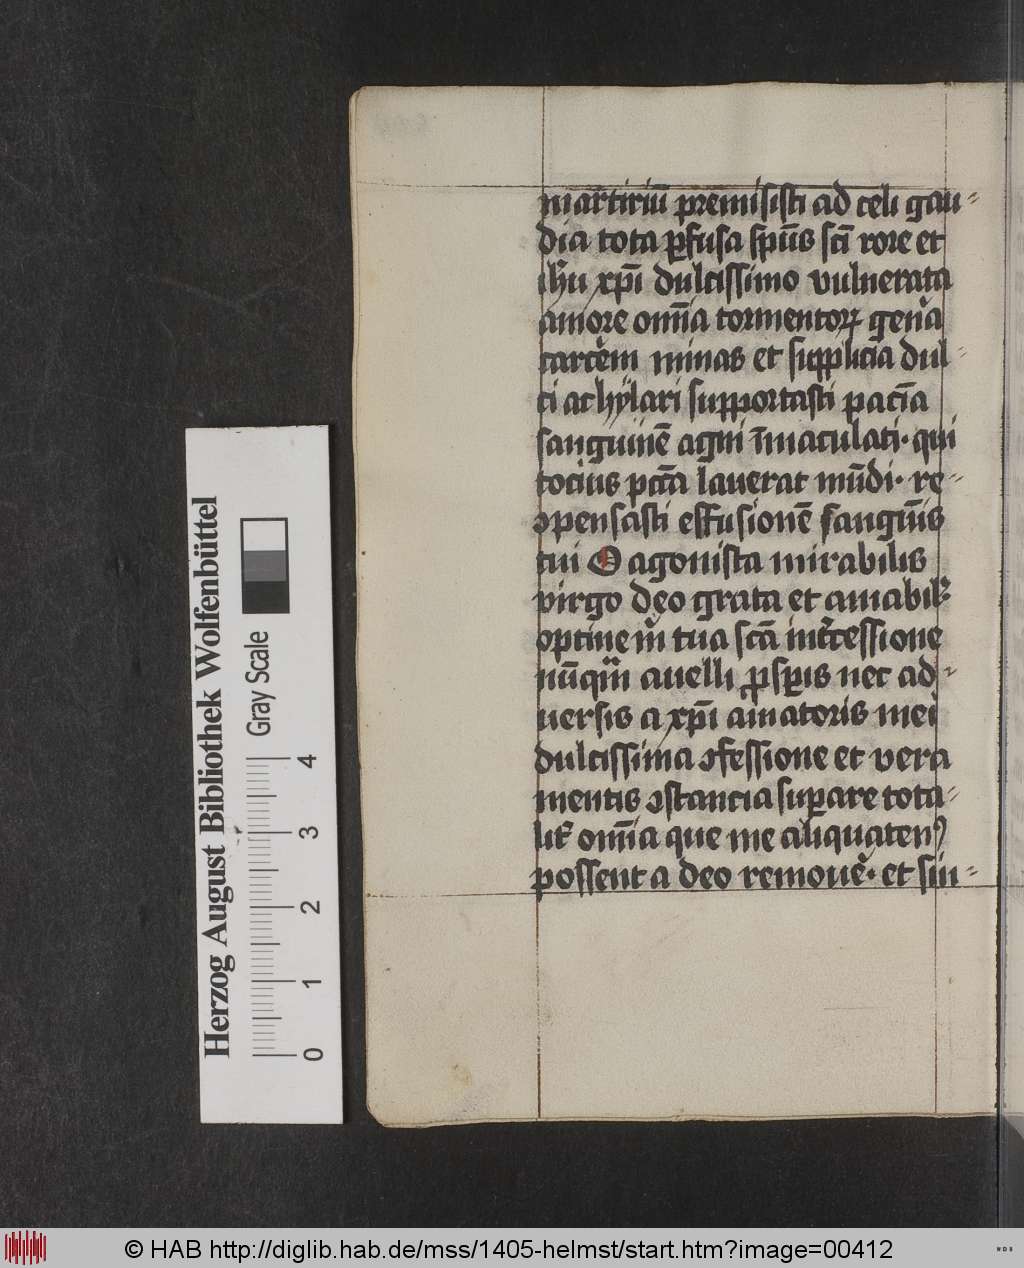 martiriū premisisti ad celi gau-
dia tota ꝑfusa spūs scī rore et
ihū xpī dulcissimo vulnerata
amore omīa tormentoꝝ genʼa
carcēm minas et supplicia dul-
ci ac hylari supportasti paciā
sanguinē agni īmaculati· qui
tocius pctā lauerat mūdi· re-
ꝯpensasti effusionē sanguīs
tui O agonista mirabilis
virgo deo grata et amabil'
optine m tua scā intʼcessione
nūqm auelli ꝓspis nec ad-
uersis a xpī amatoris mei
dulcissima ꝯfessione et vera
mentis ꝯstancia suꝑare tota-
lit' omīa que me aliquatenꝰ
possent a deo remouē· et sin-
Herzog August Bibliothek Wolfenbüttel
Gray Scale
0 1 2 3 4
© HAB http://diglib.hab.de/mss/1405-helmst/start.htm?image=00412